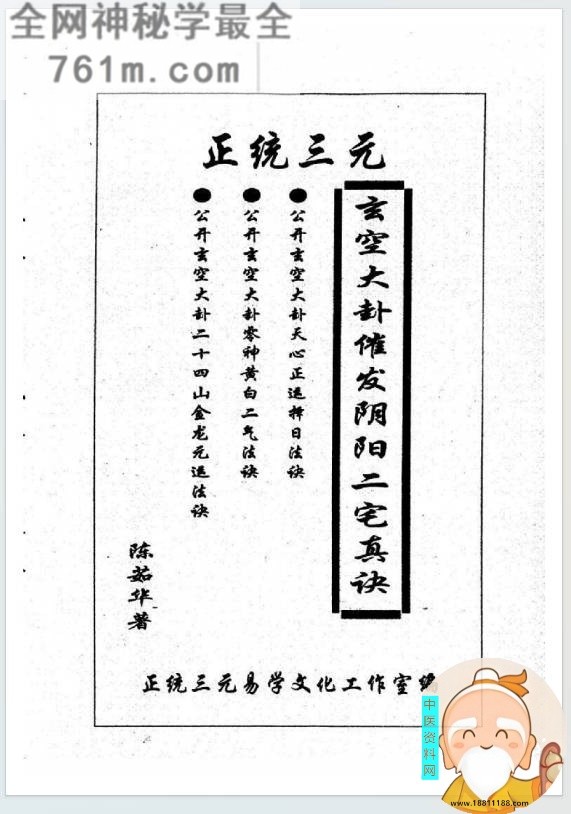 全网神秘学最全
761m.com
正统三元
玄空大卦催发阴阳二宅真诀
●公开玄空大卦天心正运择日法诀
●公开玄空大卦零神黄白二气法诀
●公开玄空大卦二十四山金龙元运法诀
陈茹华著
正统三元易学文化工作室编
中医资料网
www.18811188.com